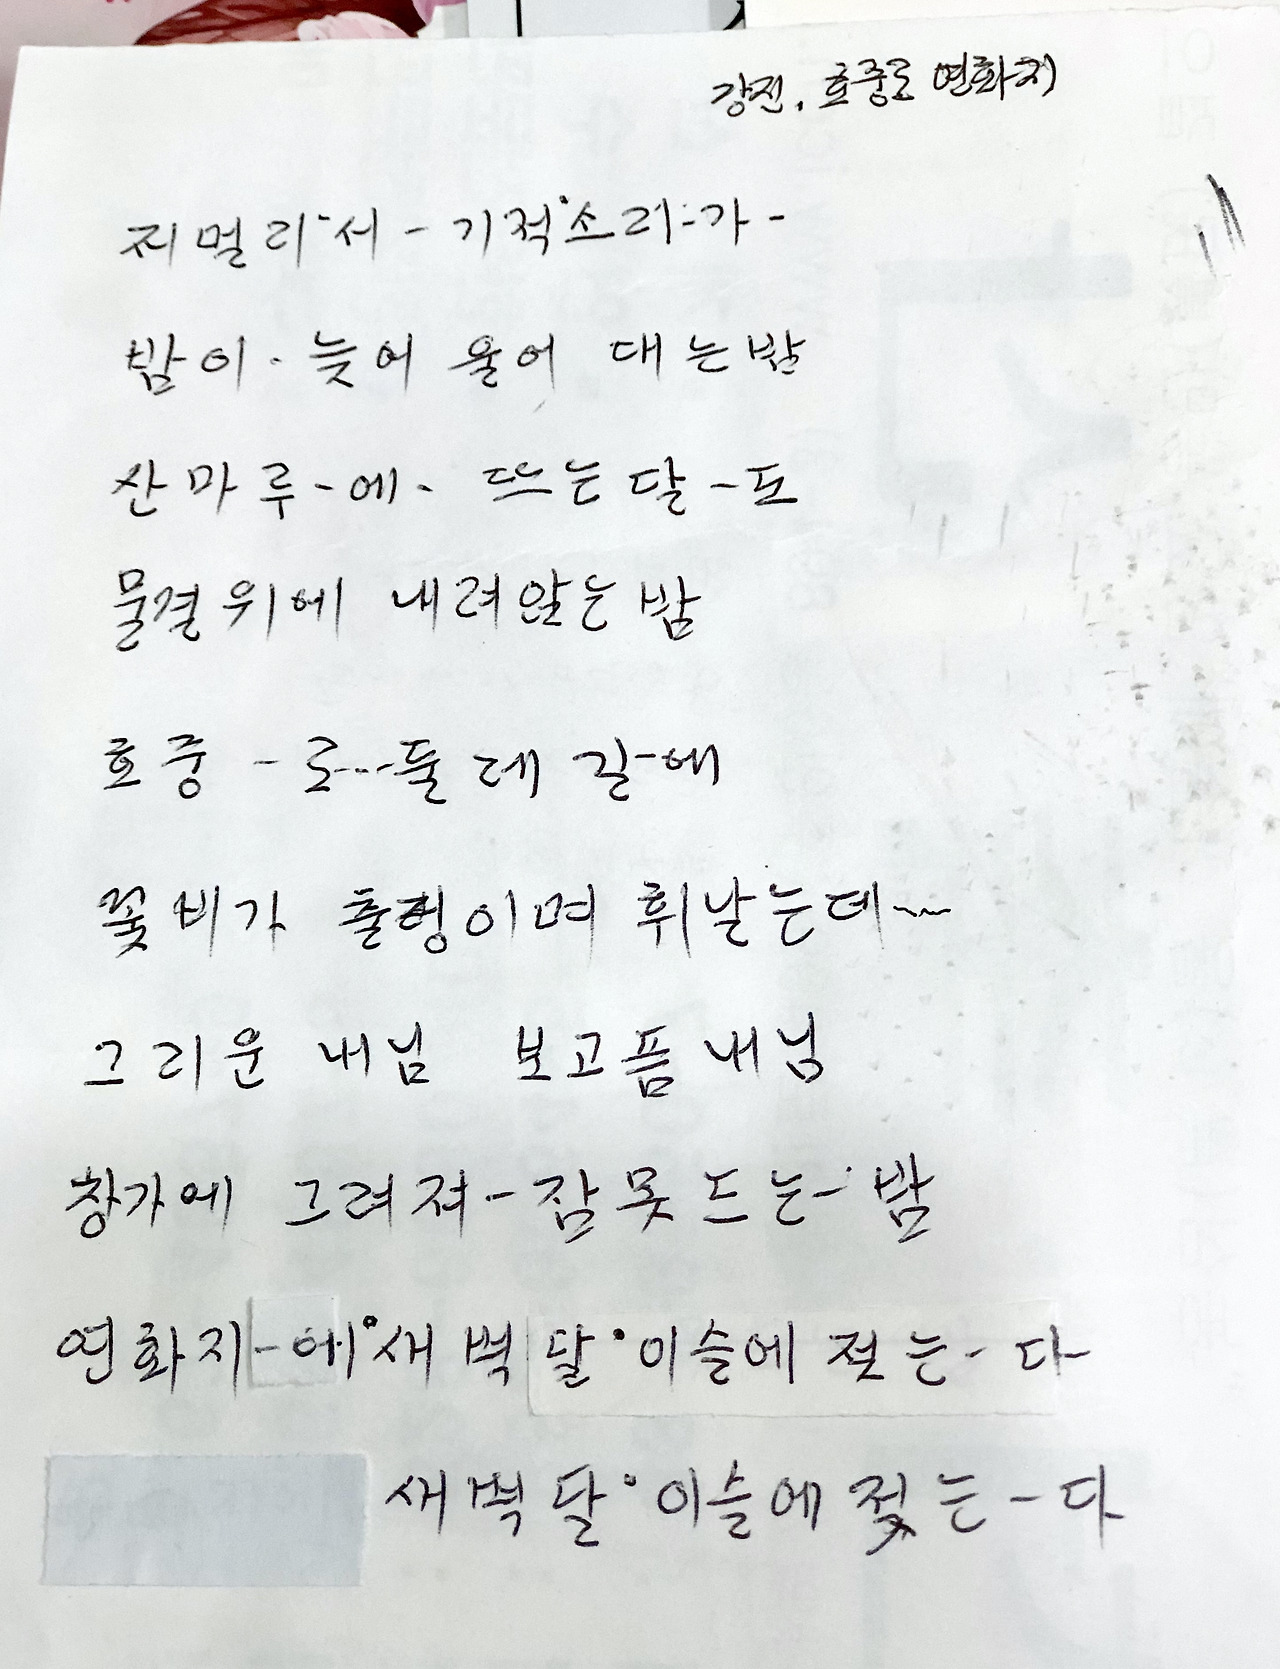 강진. 효중로 연화지
저멀리서 - 기적소리-가 -
밤이 · 늦어 울어 대는밤
산마루-에- 뜨는달-도
물결위에 내려앉는밤
효중 - 로---둘레길-에
꽃비가 출렁이며 휘날는데~~
그리운 내님 보고픔내님
창가에 그려져-잠못드는-밤
연화지-에°새벽달°이슬에 젖는-다
새벽달°이슬에 젖는-다